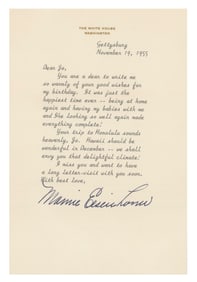 THE WHITE HOUSE
WASHINGTON
Gettysburg
November 19, 1955
Dear Jo,
You are a dear to write me
so warmly of your good wishes for
my birthday. It was just the
happiest time ever -- being at home
again and having my babies with me
and Ike looking so well again made
everything complete!
Your trip to Honolulu sounds
heavenly, Jo. Hawaii should be
wonderful in December -- we shall
envy you that delightful climate!
I miss you and want to have
a long letter-visit with you soon.
With best love,
Mamie Eisenhower